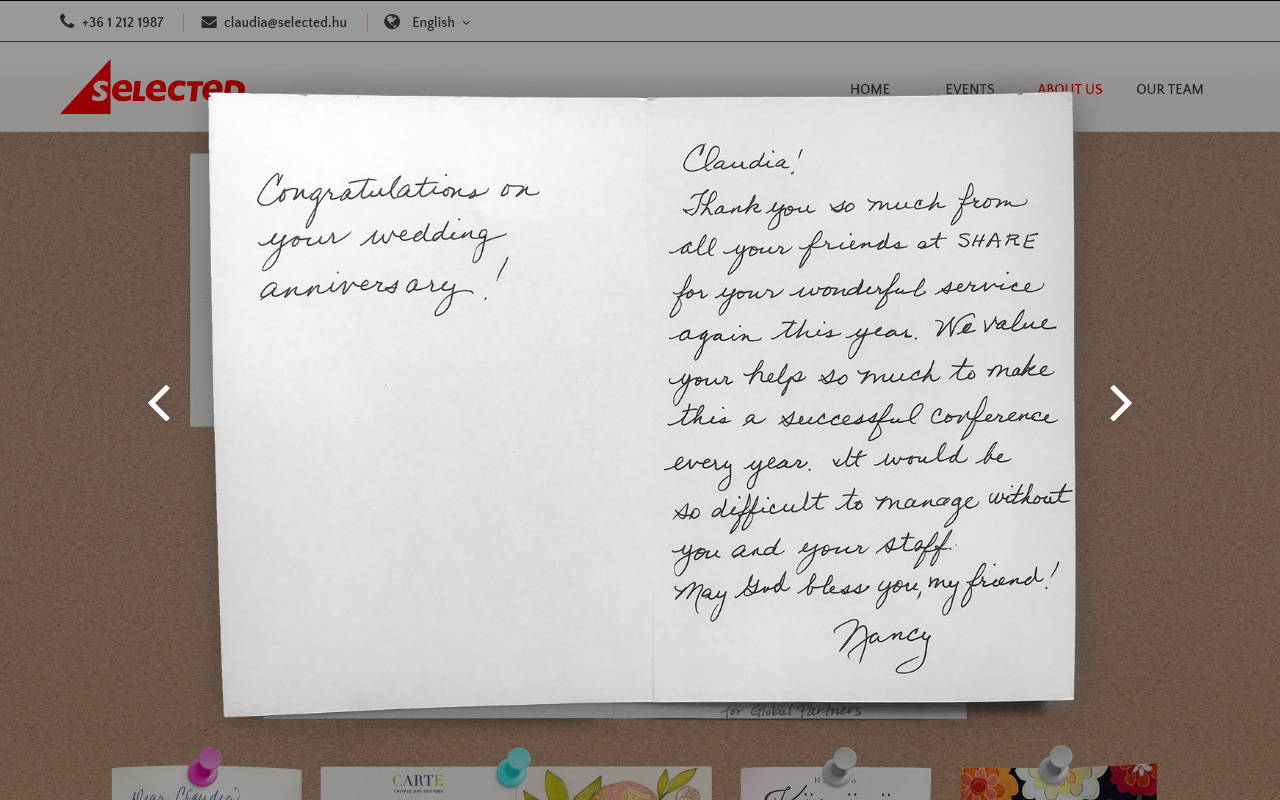 +36 1 212 1987
claudia@selected.hu
English
SELECTED
HOME
EVENTS
ABOUT US
OUR TEAM
Congratulations on
your wedding
anniversary!
Claudia!
Thank you so much from
all your friends at SHARE
for your wonderful service
again this year. We value
your help so much to make
this a successful conference
every year. It would be
so difficult to manage without
you and your staff.
May God bless you, my friend!
Nancy
for Global Partners
CARTE
CALYPSO ART EDITIONS
Dear Claudia